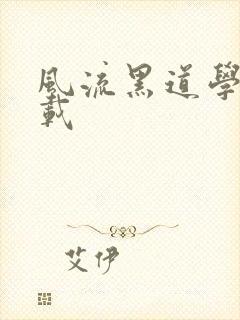 風流黑道學
載
艾伊